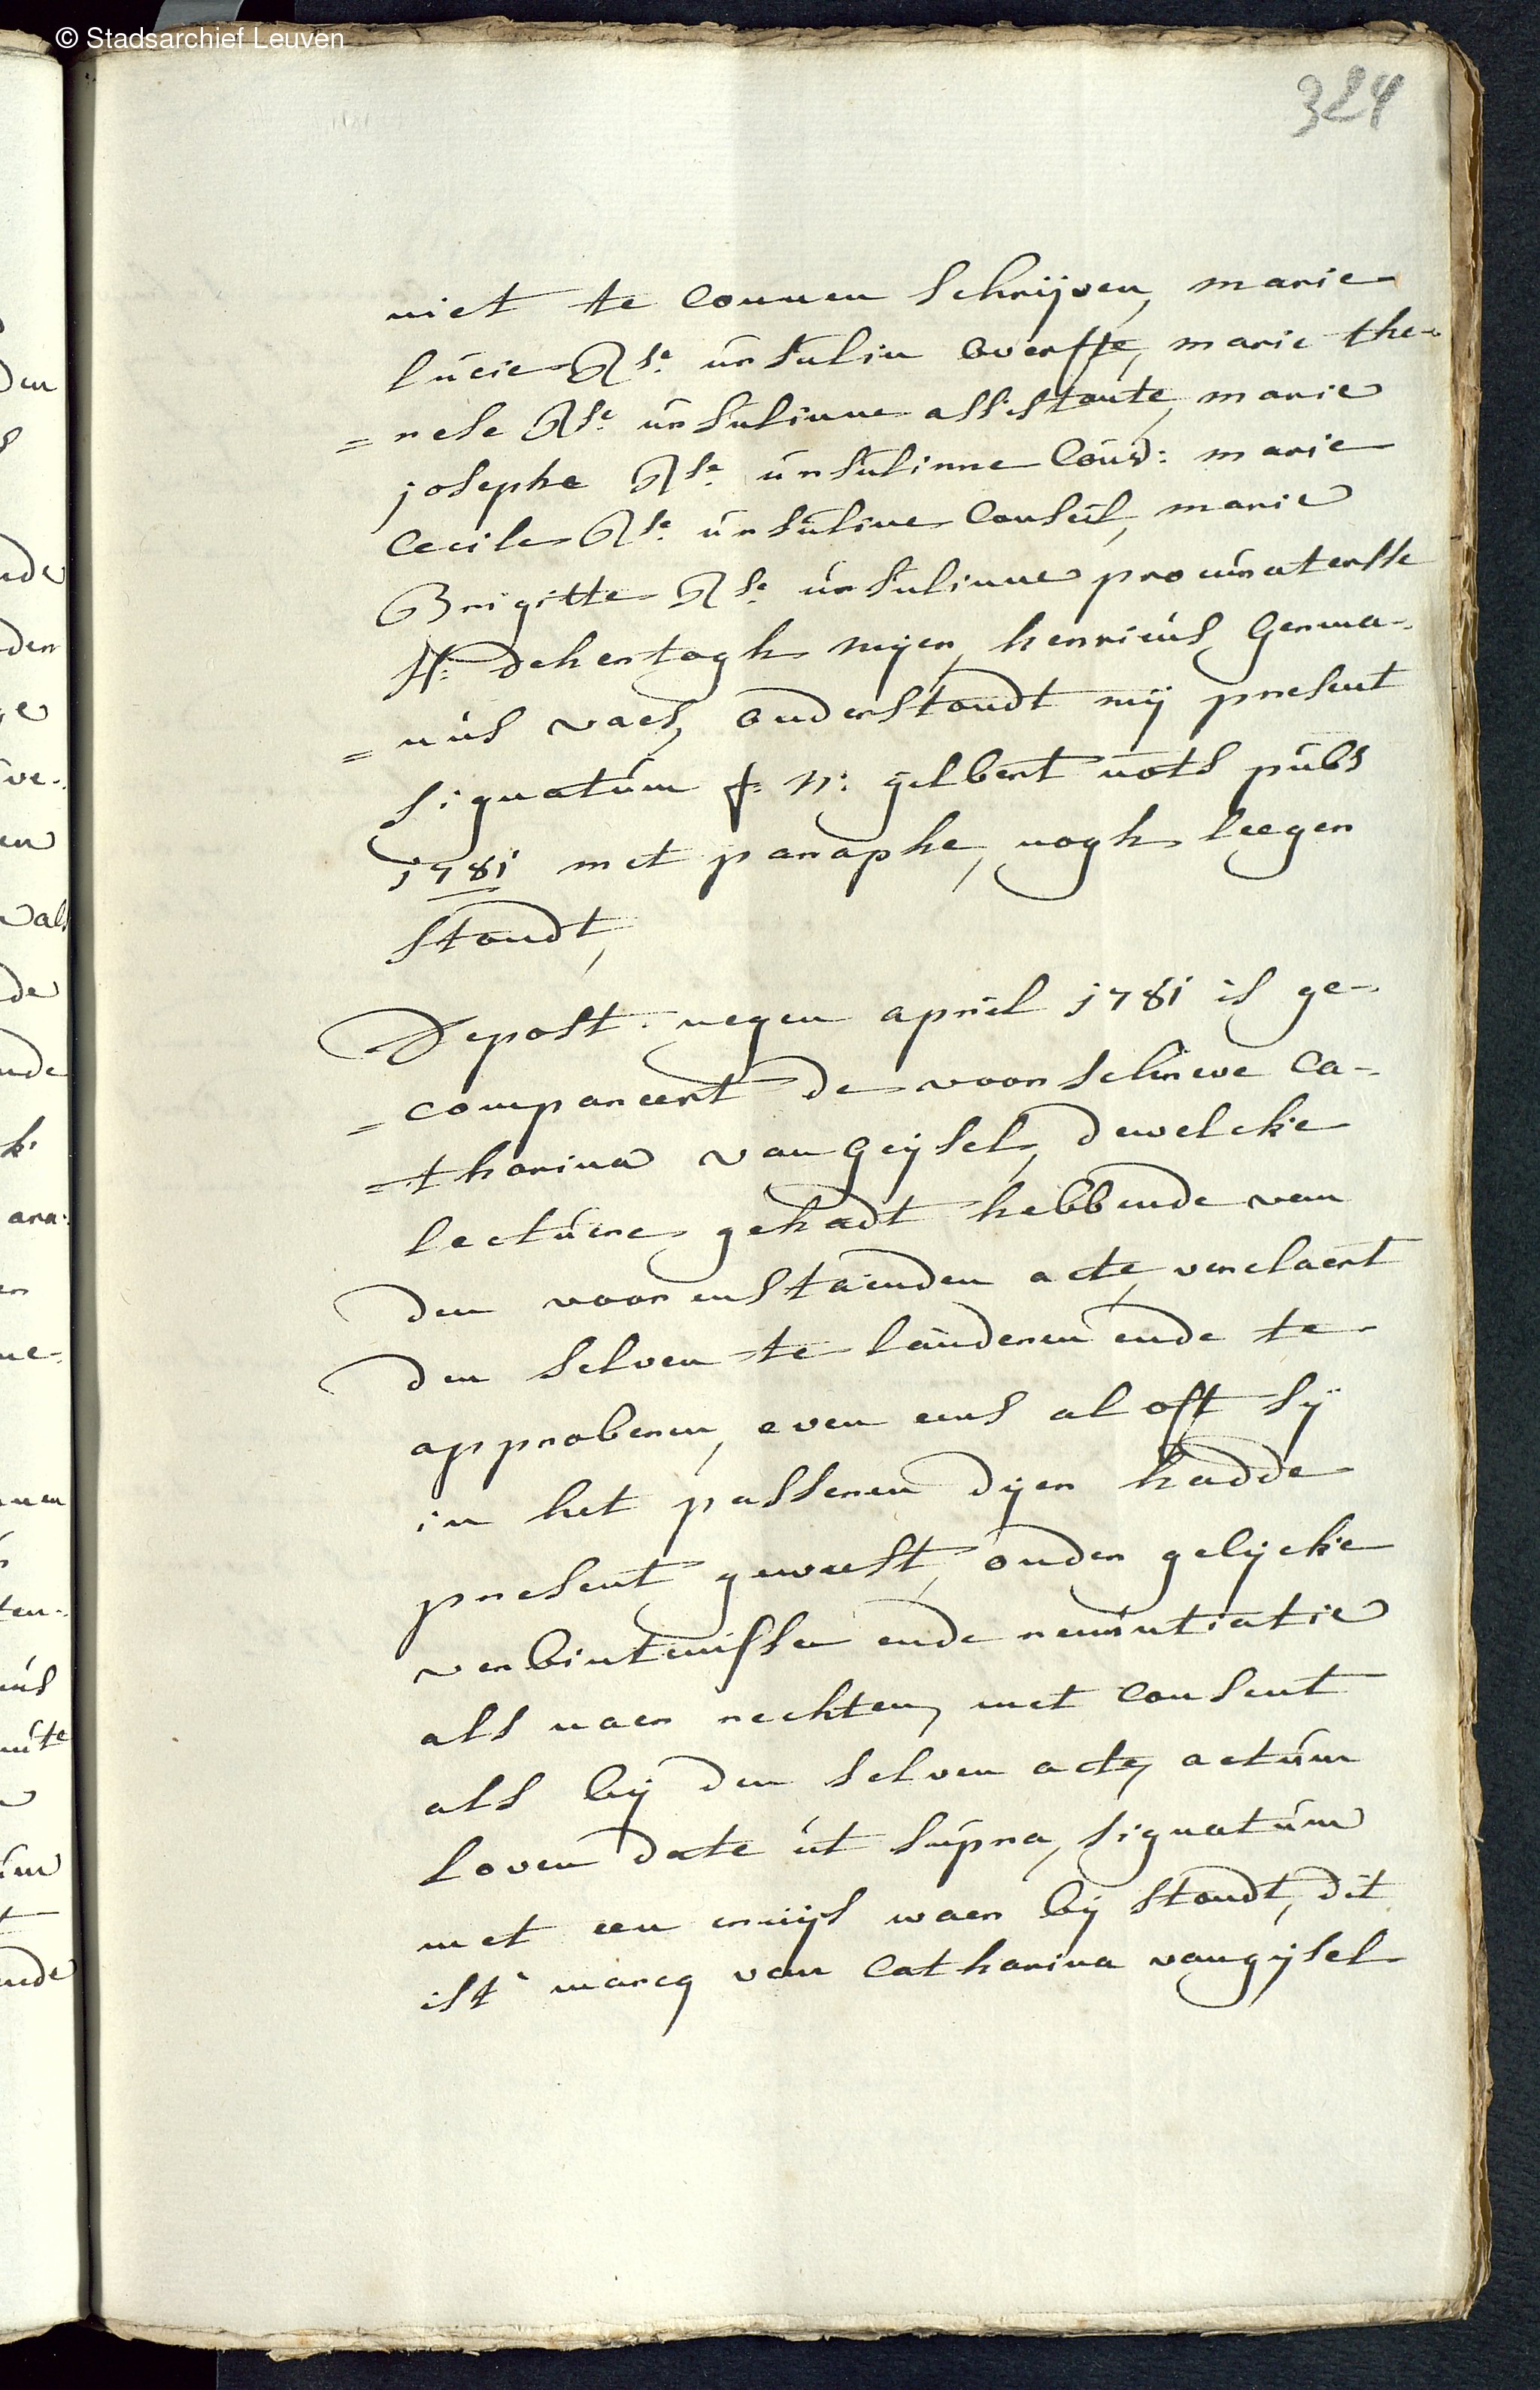 © Stadsarchief Leuven
324
niet te connen schrijven, marie
lucie Rse. ursulin overste, marie the-
=rese Rse. ursulinne assistante, marie
josephe Rse. ursulinne Cous: marie
Cecile Rse. ursuline Conseil, marie
Brigitte Rse. ursulinne procuratersse
H: dehertogh meyer, henricus Germa-
=nus vaes, onderstondt mij present
signatum f: N: gilbert nots pubs
1781 met paraphe, nogh leegen
stondt,
Depost. negen april 1781 is ge-
=compareert de voorschreve Ca-
=tharina van Geijsel, dewelcke
lecture gehadt hebbende van
den voorenstaenden acte, verclaert
den selven te lauderen ende te
approberen, even eens al oft sij
in het passeren dijer hadde
present geweest, onder gelijcke
verbintenisse ende renuntiatie
als naer rechten, met consent
als bij den selven acte, actum
loven date ut supra, signatum
met een cruijs waer bij stondt, dit
ist marcq van Catharina vangijsel